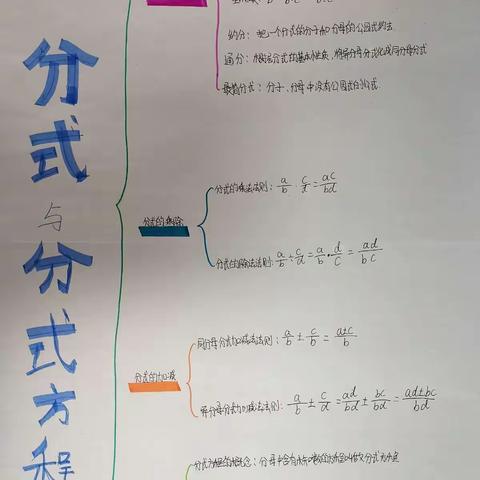 分式与分式方程
约分：把一个分式的分子和分母的公因式约去
通分：根据分式的基本性质，将异分母分式化成同分母分式
最简分式：分子、分母中没有公因式的分式
分式的乘除
分式的乘法法则：a/b · c/d = ac/bd
分式的除法法则：a/b ÷ c/d = a/b · d/c = ad/bc
分式的加减
同分母分式加减法法则：a/b ± c/b = a±c/b
异分母分式加减法法则：a/b ± c/d = ad/bd ± bc/bd = ad±bc/bd
分式方程的概念：分母中含有未知数的方程叫做分式方程